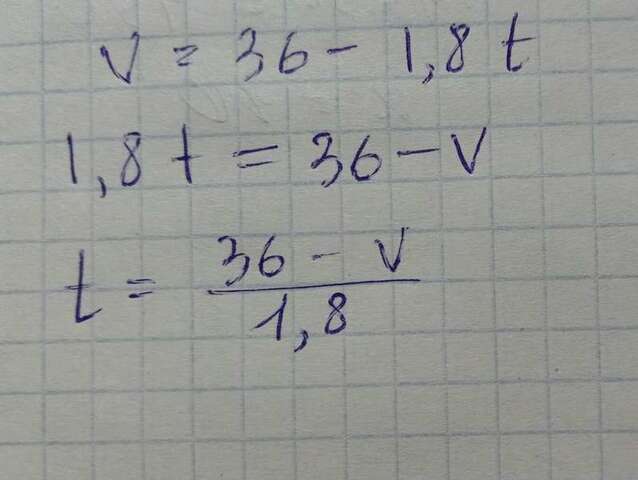 v = 36 - 1,8 t
1,8 t = 36 - v
t = \frac{36 - v}{1,8}